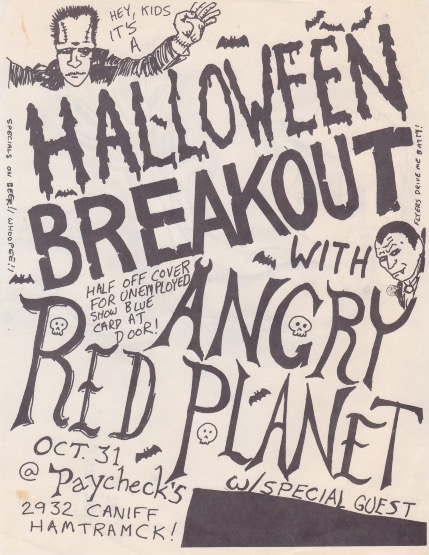 HEY, KIDS
IT'S
A
HALLOWEEN
BREAKOUT
WITH
SPECIALS ON BEER!! WHOOPEE!!
FLYERS DRIVE ME BATTY!
HALF OFF COVER
FOR UNEMPLOYED
SHOW BLUE
CARD AT
DOOR!
ANGRY
RED PLANET
OCT. 31
@ Paycheck's
2932 CANIFF
HAMTRAMCK!
W/SPECIAL GUEST